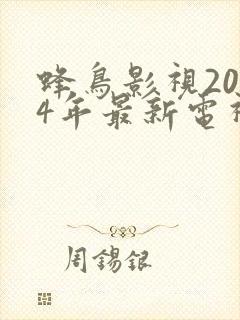 蜂鳥影視20
4年最新電
周錫銀